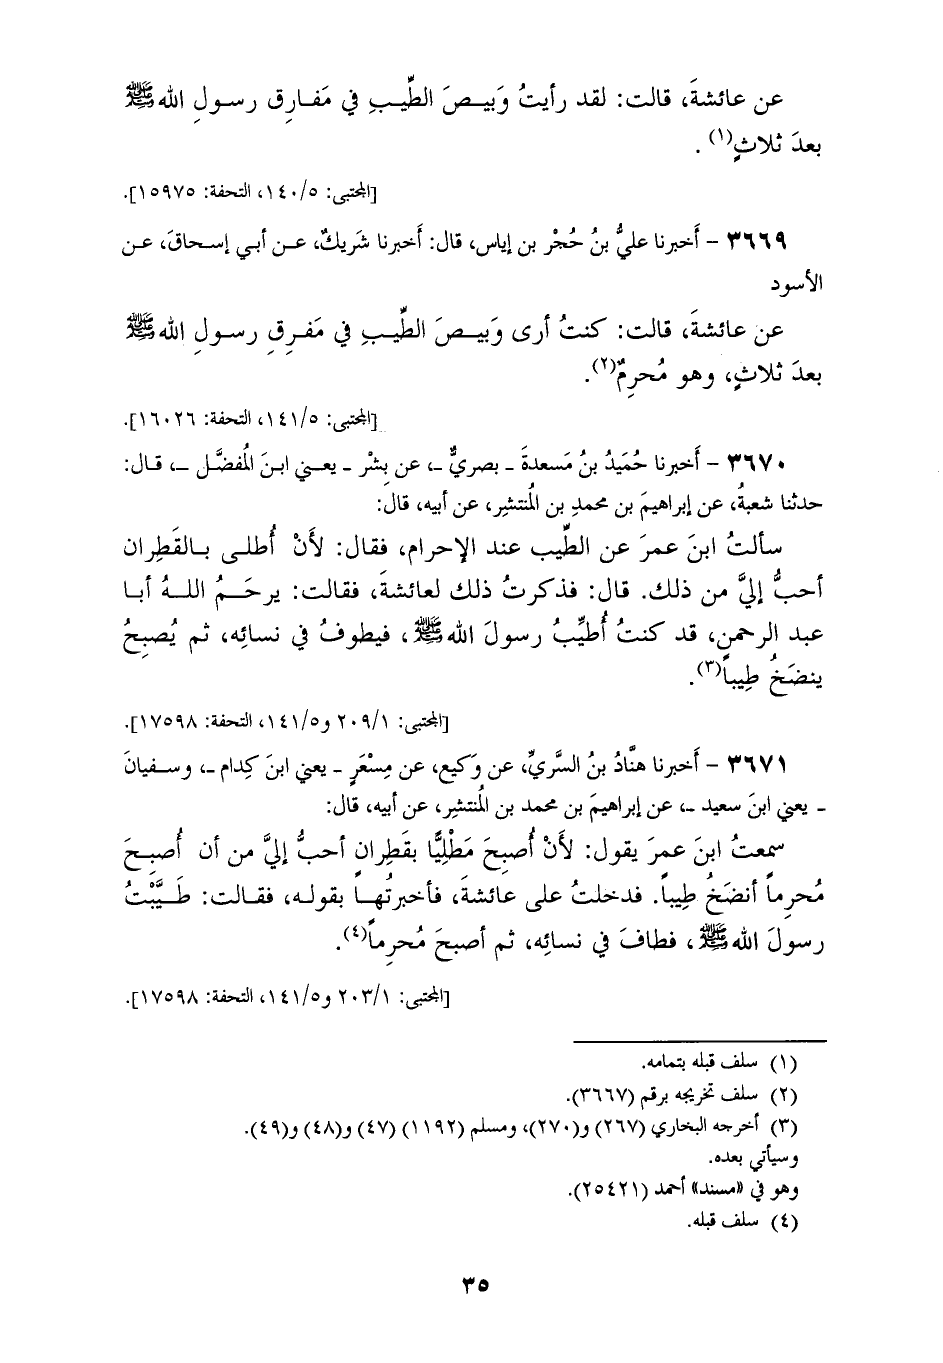 عن عائشةَ، قالت: لقد رأيتُ وَبيـصَ الطِّيـبِ في مَفـارِق رسـولِ اللهﷺ
بعدَ ثلاثٍ(١) .
[المجتبى: ١٤٠/٥، التحفة: ١٥٩٧٥].
٣٦٦٩ - أَخبرنا عليُّ بنُ حُجْر بن إياس، قال: أَخبرنا شَريكٌ، عـن أبـي إسـحاقَ، عـن
الأسود
عن عائشةَ، قالت: كنتُ أرى وَبيـصَ الطِّيـبِ في مَفـرِقِ رسـولِ اللهﷺ
بعدَ ثلاثٍ، وهو مُحرِمٌ(٢).
[المجتبى: ١٤١/٥، التحفة: ١٦٠٢٦].
٣٦٧٠ - أَخبرنا حُمَيدُ بنُ مَسعدةَ ـ بصريٌّ ـ، عن بِشْر ـ يعـني ابـنَ المُفضَّل ـ، قـال:
حدثنا شعبةُ، عن إبراهيمَ بن محمدِ بن المُنتشِر، عن أبيه، قال:
سألتُ ابنَ عمرَ عن الطِّيب عند الإحرام، فقال: لأَنْ أُطلـى بـالقَطِران
أحبُّ إليَّ من ذلك. قال: فذكرتُ ذلك لعائشةَ، فقالت: يرحَـمُ اللـهُ أبـا
عبد الرحمن، قد كنتُ أُطيِّبُ رسولَ اللهﷺ، فيطوفُ في نسائِه، ثم يُصبِحُ
ينضَخُ طِيباً(٣).
[المجتبى: ٢٠٩/١ و١٤١/٥، التحفة: ١٧٥٩٨].
٣٦٧١ - أَخبرنا هنَّادُ بنُ السَّريِّ، عن وَكيع، عن مِسْعَرٍ ـ يعني ابنَ كِدام ـ، وسـفيانَ
ـ يعني ابنَ سعيد ـ، عن إبراهيمَ بن محمد بن المُنتشِر، عن أبيه، قال:
سمعتُ ابنَ عمرَ يقول: لأَنْ أُصبِحَ مَطْلِيًّا بقَطِرانٍ أحبُّ إليَّ من أن أُصبِـحَ
مُحرِماً أنضَخُ طِيباً. فدخلتُ على عائشةَ، فأخبرتُهـا بقولـه، فقـالت: طَـيَّبْتُ
رسولَ اللهﷺ، فطافَ في نسائِه، ثم أصبحَ مُحرِماً(٤).
[المجتبى: ٢٠٣/١ و١٤١/٥، التحفة: ١٧٥٩٨].
(١) سلف قبله بتمامه.
(٢) سلف تخريجه برقم (٣٦٦٧).
(٣) أخرجه البخاري (٢٦٧) و(٢٧٠)، ومسلم (١١٩٢) (٤٧) و(٤٨) و(٤٩).
وسيأتي بعده.
وهو في «مسند» أحمد (٢٥٤٢١).
(٤) سلف قبله.
٣٥